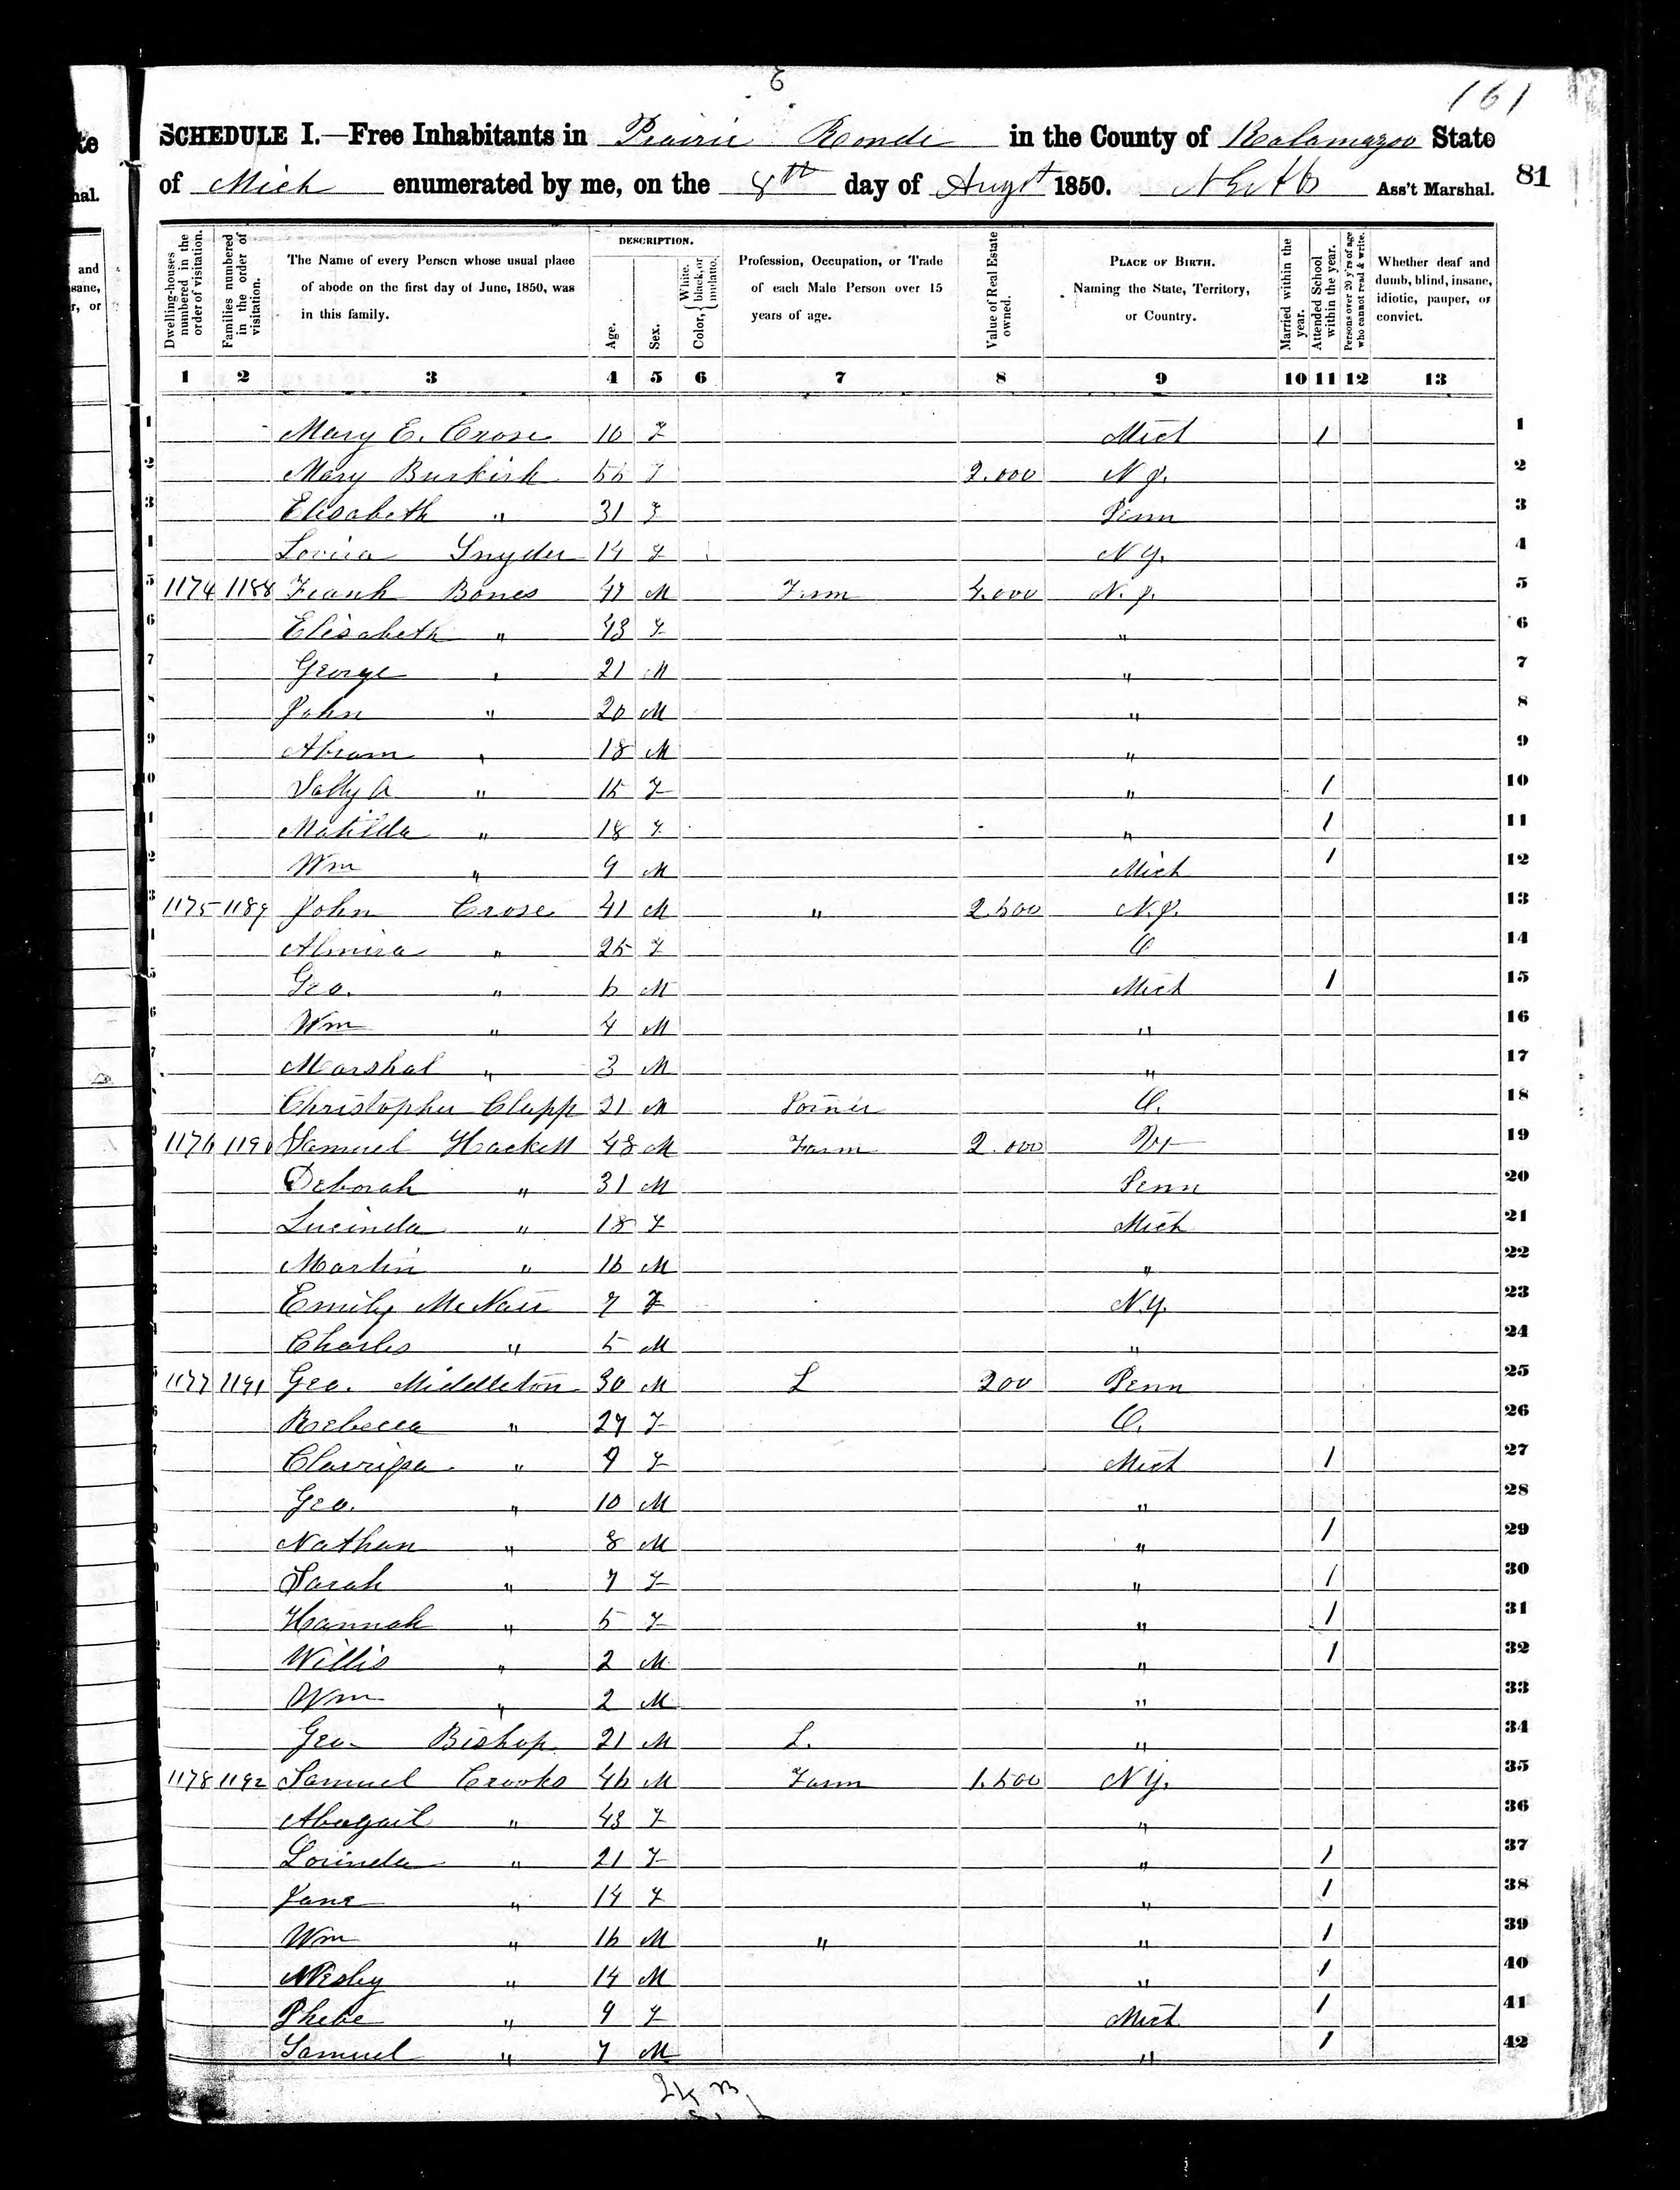 161
SCHEDULE I.—Free Inhabitants in Prairie Ronde in the County of Kalamazoo State
of Mich enumerated by me, on the 8th day of Augst 1850. Ass't Marshal. 81
Dwelling-houses numbered in the order of visitation. Families numbered in the order of visitation. The Name of every Person whose usual place of abode on the first day of June, 1850, was in this family. DESCRIPTION. Age. Sex. Color, White, black, or mulatto. Profession, Occupation, or Trade of each Male Person over 15 years of age. Value of Real Estate owned. PLACE OF BIRTH. Naming the State, Territory, or Country. Married within the year. Attended School within the year. Persons over 20 y'rs of age who cannot read & write. Whether deaf and dumb, blind, insane, idiotic, pauper, or convict.
1 2 3 4 5 6 7 8 9 10 11 12 13
1 Mary E. Crose 10 F Mich 1 1
2 Mary Burkirk 55 F 2.000 N J. 2
3 Elisabeth " 31 F Penn 3
Lovica Snyder 14 F N Y. 4
5 1174 1188 Frank Bones 47 M Farm 4.000 N. J. 5
6 Elisabeth " 43 F " 6
7 George " 21 M " 7
8 John " 20 M " 8
9 Abram " 18 M " 9
10 Sally A " 15 F " 1 10
Matilda " 18 F " 1 11
2 Wm " 9 M Mich 1 12
3 1175 1189 John Crose 41 M " 2.500 N. J. 13
Almira " 25 F O 14
5 Geo. " 6 M Mich 1 15
6 Wm " 4 M " 16
7 Marshal " 3 M " 17
Christopher Clapp 21 M Joiner O. 18
1176 1190 Samuel Hackett 43 M Farm 2.000 Vt 19
Deborah " 31 M Penn 20
Lucinda " 18 F Mich 21
Martin " 16 M " 22
Emily McNair 7 F N.Y. 23
Charles " 5 M " 24
1177 1191 Geo. Middleton 30 M L 200 Penn 25
Rebecca " 27 F O. 26
Clarrissa " 9 F Mich 1 27
Geo. " 10 M " 28
Nathan " 8 M " 1 29
Sarah " 7 F " 1 30
Hannah " 5 F " 1 31
Willis " 2 M " 1 32
Wm " 2 M " 33
Geo. Bishop 21 M L. " 34
1178 1192 Samuel Crooks 46 M Farm 1.500 N Y. 35
Abagail " 43 F " 36
Lorinda " 21 F " 1 37
Jane " 14 F " 1 38
Wm " 16 M " " 1 39
Wesley " 14 M " 1 40
Phebe " 9 F Mich 1 41
Samuel " 7 M " 1 42